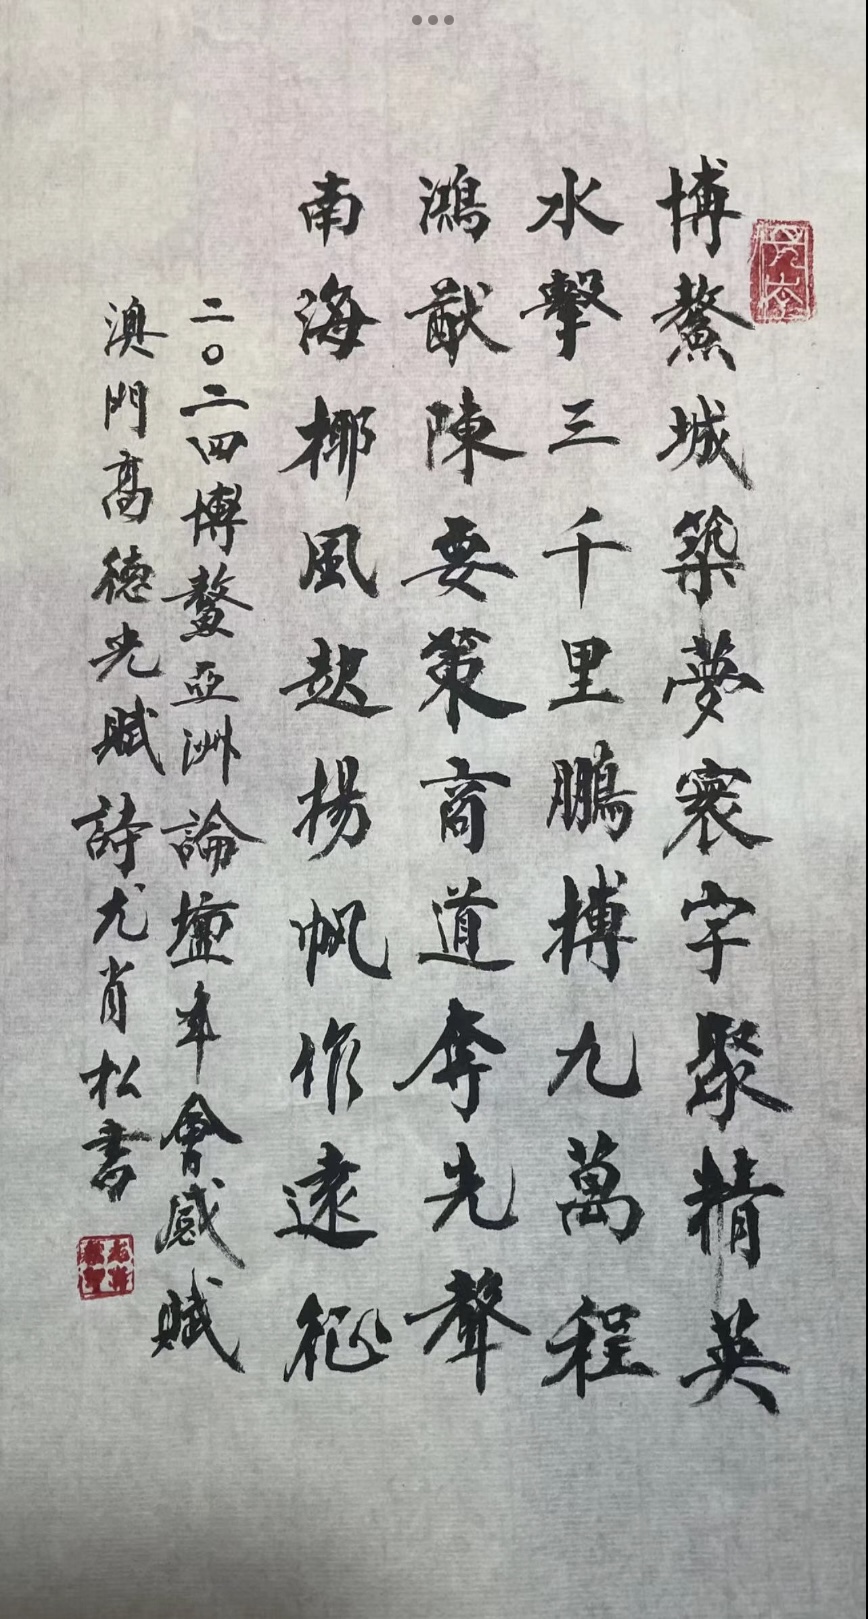 博鰲城築夢寰宇聚精英
水擊三千里鵬搏九萬程
鴻猷陳要策商道奪先聲
南海椰風起揚帆作遠征
二〇二四博鰲亞洲論壇年會感賦
澳門高德光賦詩尤肖松書